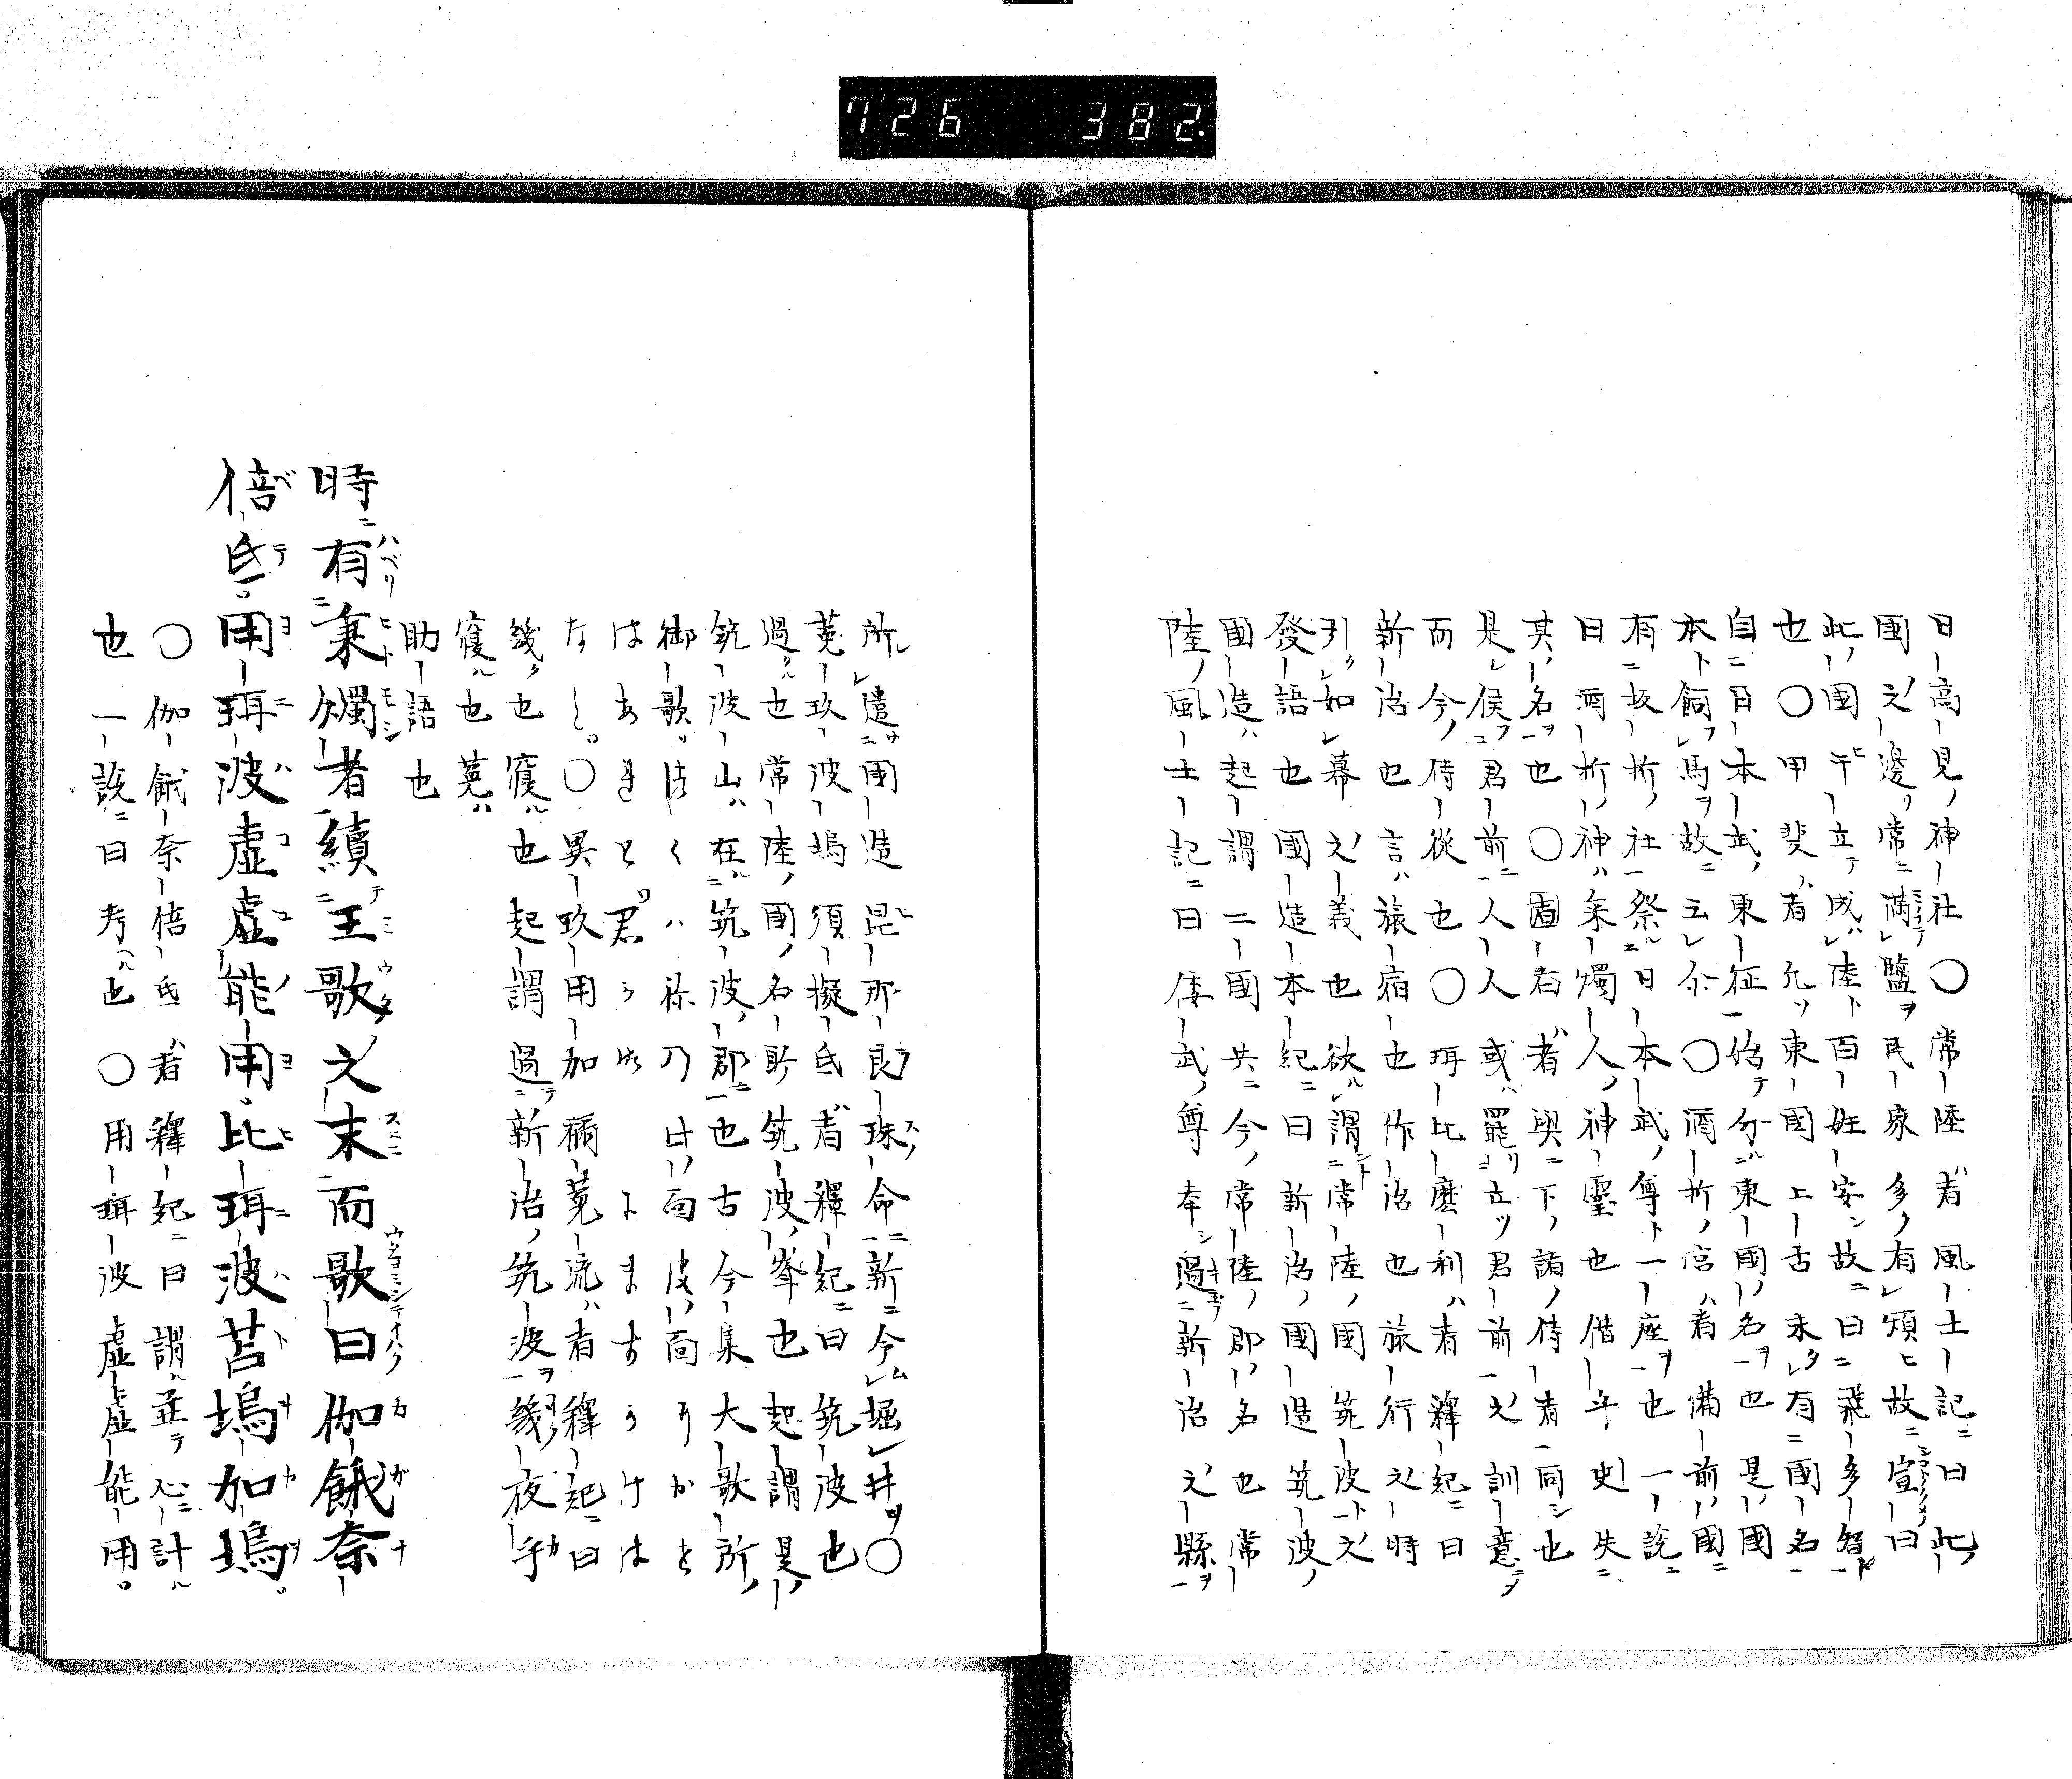 726 382.
日高見神社〇常陸者風士記曰此
國之邊常滿鹽民家多有煩故宣曰
此國干立成陸百姓安故曰飛多智
也〇甲斐者九東國上古未有國名
自日本武東征始分東國名也是國
本飼馬故云尒〇酒折宮者滿前國
有坂折社祭日本武尊一座也一說
曰酒折神秉燭人神靈也偕年史失
其名也〇圖者者與下諸侍者同也
是侯君前人人或罷立君前之訓意
而今侍從也〇珥比麼利者釋紀曰
新治也言旅宿也作治也旅行之時
引如幕之義也欲謂常陸國筑波之
發語也國造本紀曰新治國造筑波
國造起謂二國共今常陸郡名也常
陸風土記曰倭武尊奉過新治之縣
所遣國造昆那良珠命新今堀井〇
菟玖波塢須擬氐者釋紀曰筑波也
過也常陸國名所筑波峯也起謂是
筑波山在筑波郡也古今集大歌所
御歌つくハ祢乃此面彼面かと
はあれと君かみかけはすう
なし〇異玖用加禰菟流者釋紀曰
幾也寢也起謂過新治筑波幾夜手
寢也菟
助語也
時有秉燭者續王歌之末而歌曰伽餓奈
倍氐用珥波虛虛能用比珥波苔塢加塢
〇伽餓奈倍氐者釋紀曰謂並心計
也一說曰考也〇用珥波虛虛能用